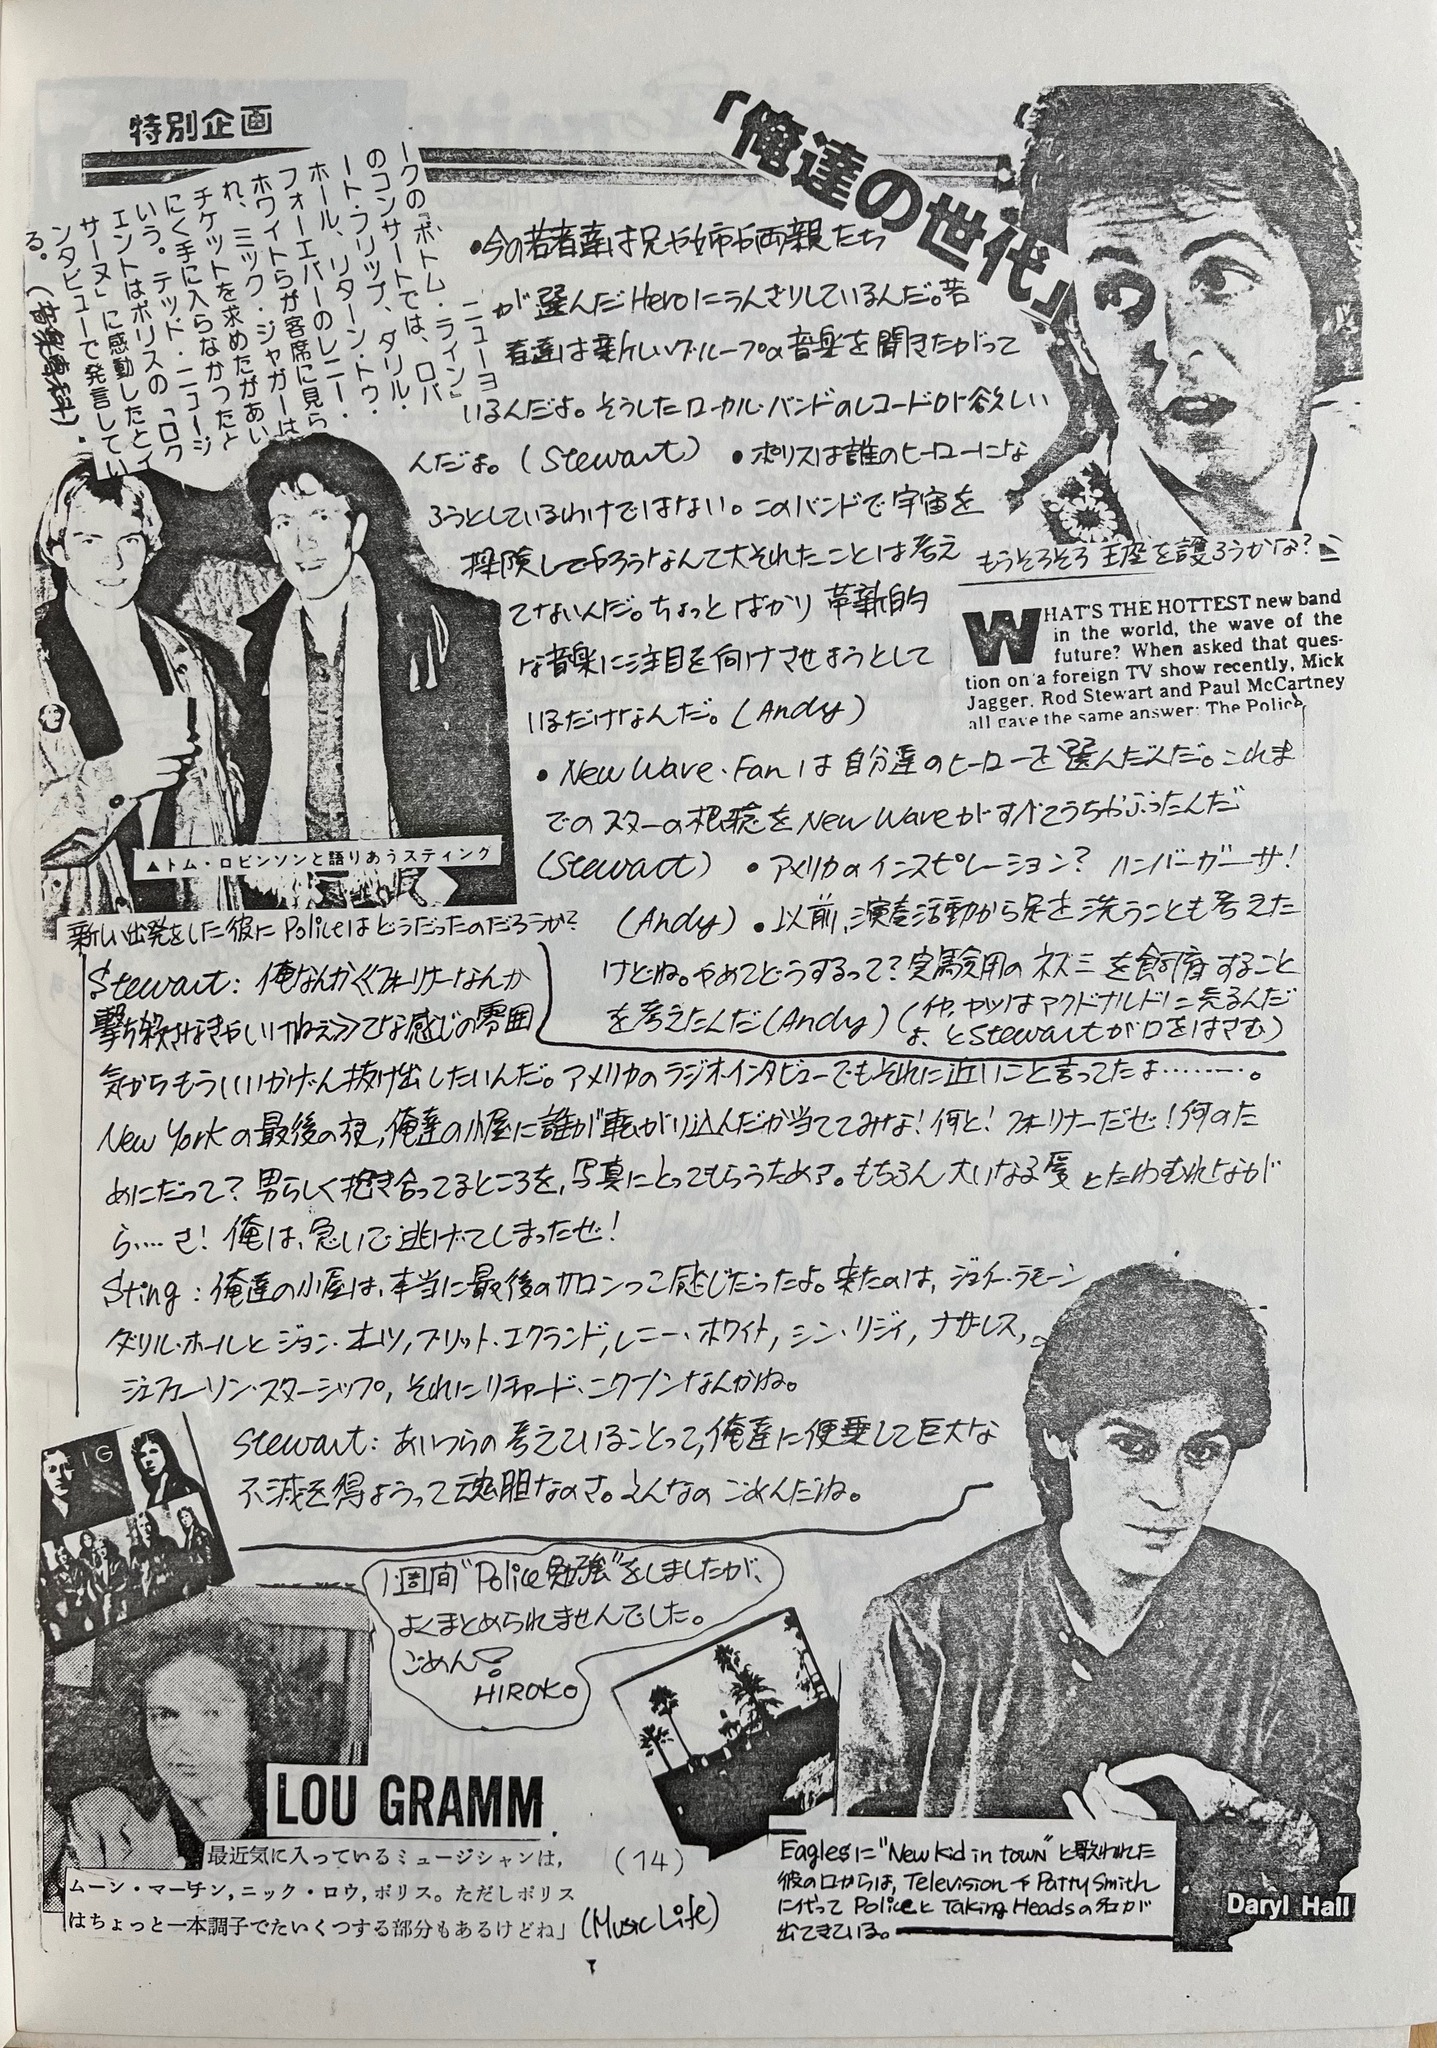 特別企画
「俺達の世代」
ニューヨ
ークの『ボトム・ライン』
のコンサートでは、ロバ
ート・フリップ、ダリル・
ホール、リターン・トゥ・
フォーエバーのレニー・
ホワイトらが客席に見ら
れ、ミック・ジャガーは
チケットを求めたがあい
にく手に入らなかったと
いう。テッド・ニュージ
ェントはポリスの「ロク
サーヌ」に感動したとイ
ンタビューで発言してい
る。
・今の若者達は兄や姉や両親たち
が選んだHeroにうんざりしているんだ。若
者達は新しいグループの音楽を聞きたがって
いるんだよ。そうしたローカル・バンドのレコードが欲しい
んだよ。(Stewart) ・ポリスは誰のヒーローにな
ろうとしているわけではない。このバンドで宇宙を
探険してやろうなんて大それたことは考え
てないんだ。ちょっとばかり革新的
な音楽に注目を向けさせようとして
いるだけなんだ。(Andy)
・New Wave・Fanは自分達のヒーローを選んだんだ。これま
でのスターの概念をNew Waveがすべてうちやぶったんだ
(Stewart) ・アメリカのインスピレーション? ハンバーガーサ!
(Andy) ・以前、演奏活動から足を洗うことも考えた
けどね。やめてどうするって?実験用のネズミを飼育すること
を考えたんだ(Andy) (イヤ、ヤツはマクドナルドに売るんだ
よ、とStewartが口をはさむ)
もうそろそろ王座を譲ろうかな?
WHAT'S THE HOTTEST new band
in the world, the wave of the
future? When asked that ques-
tion on a foreign TV show recently, Mick
Jagger, Rod Stewart and Paul McCartney
all gave the same answer: The Police
▲トム・ロビンソンと語りあうスティング
新しい出発をした彼にPoliceはどうだったのだろうか?
Stewart: 俺なんか《フォリナーなんか
撃ち殺さなきゃいけねえ》てな感じの雰囲
気からもういいかげん抜け出したいんだ。アメリカのラジオ・インタビューでもそれに近いこと言ってたよ………。
New Yorkの最後の夜,俺達の小屋に誰が転がり込んだか当ててみな!何と!フォリナーだぜ!何のた
めにだって?男らしく抱き合ってるところを,写真にとってもらうためさ。もちろん大いなる愛とたわむれなが
ら…さ!俺は、急いで逃げてしまったぜ!
Sting:俺達の小屋は、本当に最後のサロンっこ感じだったよ。来たのは,ジョイ・ラモーン
ダリル・ホールとジョン・オーツ,ブリット・エクランド,レニー・ホワイト,シン・リジィ,ナザレス,
ジェファーソン・スターシップ,それにリチャード・ニクソンなんかね。
Stewart:あいつらの考えていることって,俺達に便乗して巨大な
不滅を得ようって魂胆なのさ。そんなのごめんだね。
1週間"Police勉強"をしましたが、
よくまとめられませんでした。
ごめん
HIROKO
LOU GRAMM
最近気に入っているミュージシャンは,
ムーン・マーチン,ニック・ロウ,ポリス。ただしポリス
はちょっと一本調子でたいくつする部分もあるけどね」(Music Life)
(14)
Eaglesに"New kid in town"と歌われた
彼の口からは, TelevisionやPatty Smith
に代ってPoliceとTaking Headsの名が
出てきている。
Daryl Hall